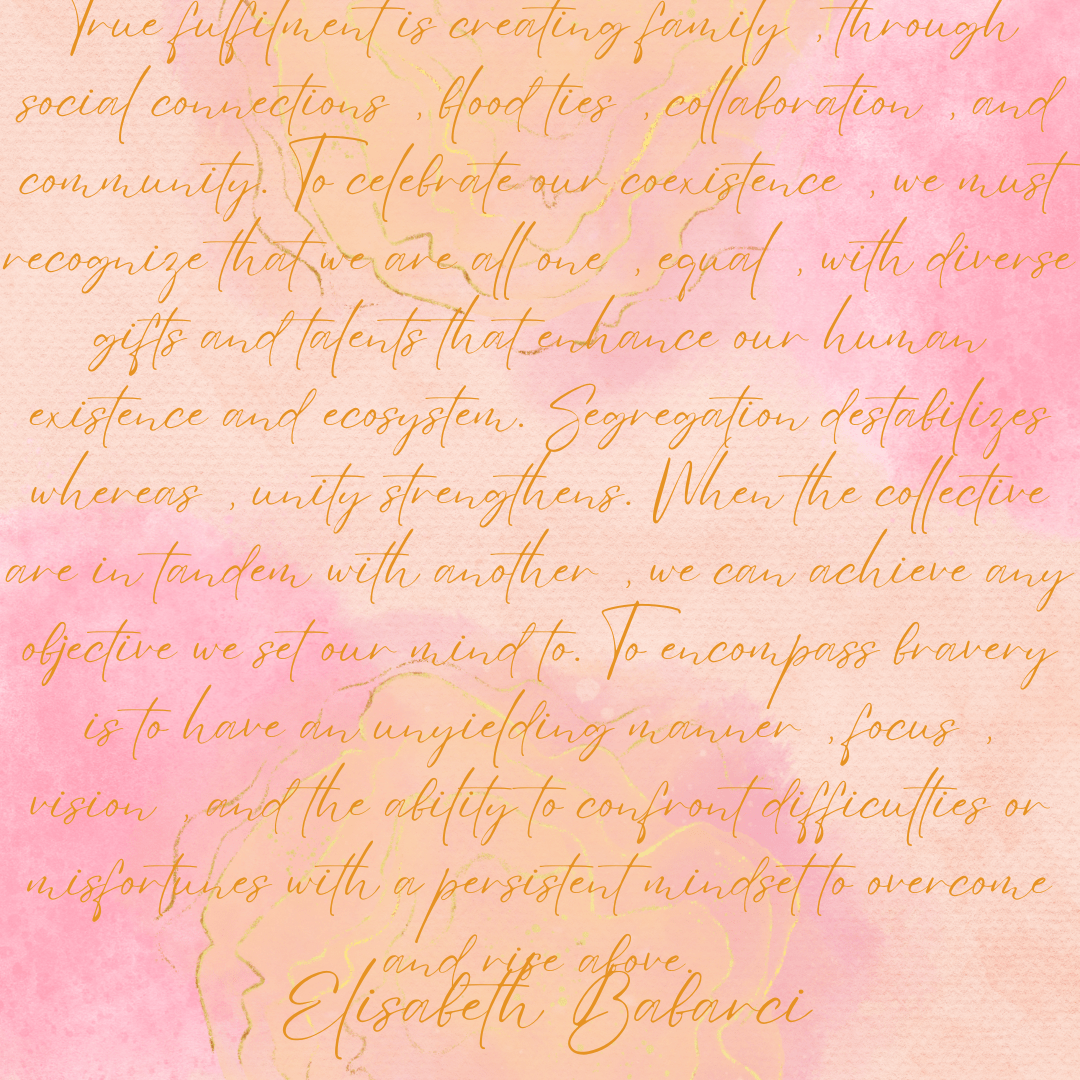 True fulfilment is creating family , through
social connections , blood ties , collaboration , and
community. To celebrate our coexistence , we must
recognize that we are all one , equal , with diverse
gifts and talents that enhance our human
existence and ecosystem. Segregation destabilizes
whereas , unity strengthens. When the collective
are in tandem with another , we can achieve any
objective we set our mind to. To encompass bravery
is to have an unyielding manner , focus ,
vision , and the ability to confront difficulties or
misfortunes with a persistent mindset to overcome
and rise above.
Elisabeth Babarci